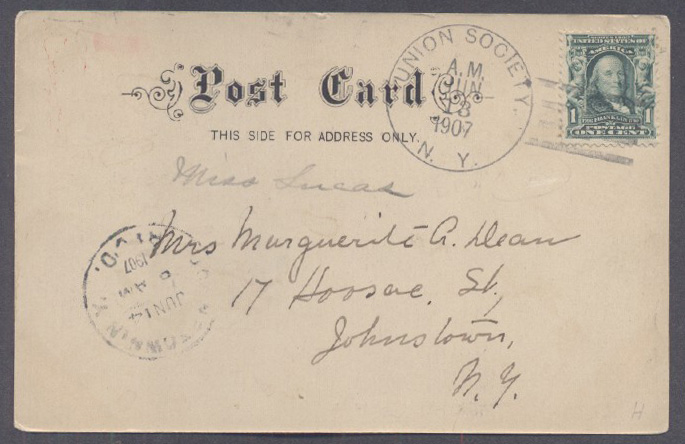 Post Card
THIS SIDE FOR ADDRESS ONLY.
UNION SOCIETY.
A.M.
JUN
13
1907
N. Y.
UNITED STATES OF
AMERICA
1 1
POSTAGE
ONE CENT
Miss Lucas
Mrs Marguerite A. Dean
17 Hoosac St,
Johnstown,
N.Y.
REC'D.
1907
AM
JUN
N.Y.
H